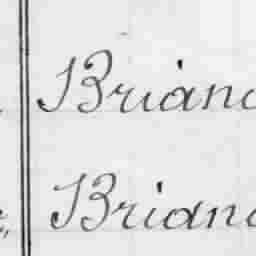 Brianc
Brianc